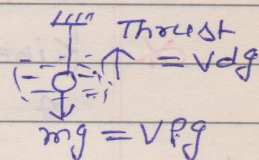 Thrust
= Vdg
mg = Vρg